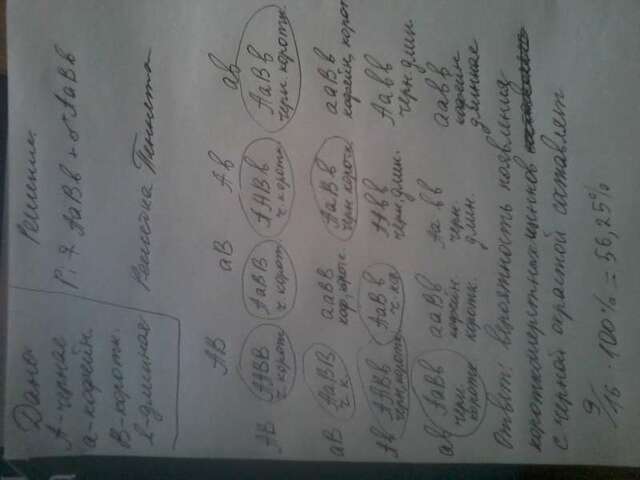 Дано:
А-черная
а-кофейн.
В-коротк.
в-длинная
Решение.
Р: ♀ АаВв × ♂ АаВв
Решетка Пеннета
АВ аВ Ав ав
АВ ААВВ АаВВ ААВв АаВв
ч. коротк. ч. корот. ч. коротк. черн. коротк.
аВ АаВВ ааВВ АаВв ааВв
ч. к. коф. корот. черн. коротк. кофейн, корот
Ав ААВв АаВв ААвв Аавв
черн. коротк. ч. ко черн. длин. черн. длин
ав АаВв ааВв Аавв аавв
черн. коротк кофейн. коротк. черн. длин. кофейн длинная
Ответ: вероятность появления
короткошерстных щенков
с черной окраской составляет
9/16 · 100% = 56,25%